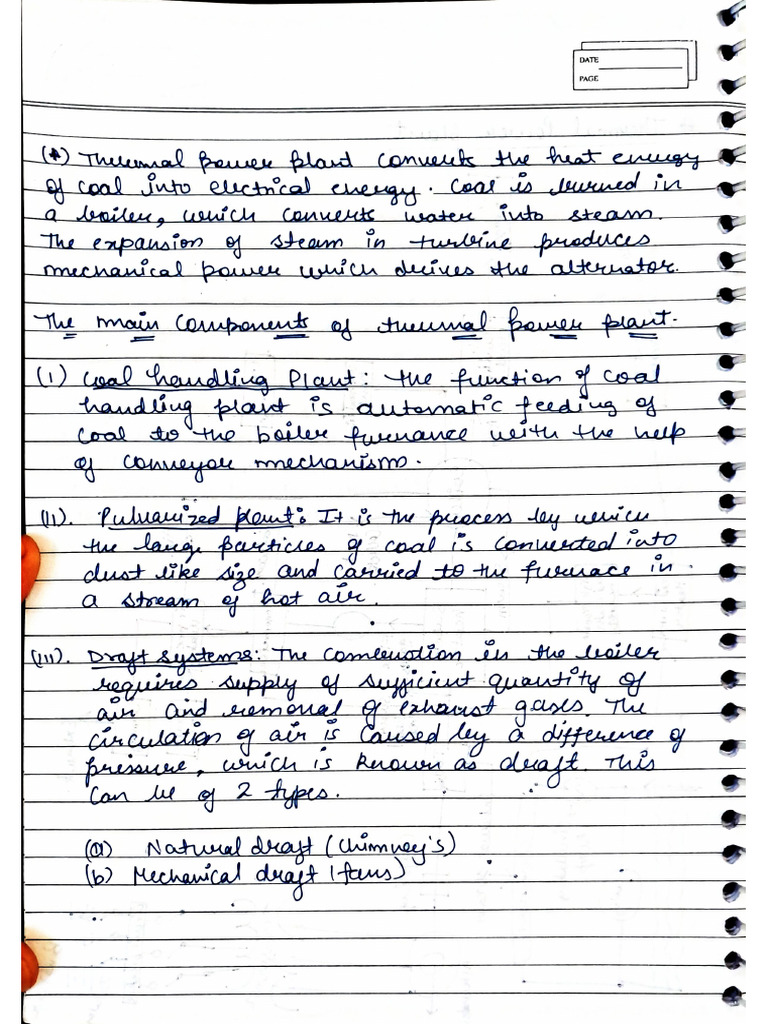 DATE
PAGE
(*) Thermal power plant converts the heat energy
of coal into electrical energy. Coal is burned in
a boiler, which converts water into steam.
The expansion of steam in turbine produces
mechanical power which derives the alternator.
The main components of thermal power plant.
(i) Coal handling Plant: the function of coal
handling plant is automatic feeding of
coal to the boiler furnance with the help
of conveyor mechanism.
(ii). Pulvarized plant: It is the process by which
the large particles of coal is converted into
dust like size and carried to the furnace in
a stream of hot air.
(iii). Draft systems: The combustion in the boiler
requires supply of sufficient quantity of
air and removal of exhaust gases. The
circulation of air is caused by a difference of
pressure, which is known as draft. This
can be of 2 types.
(a) Natural draft (chimney's)
(b) Mechanical draft (fans)